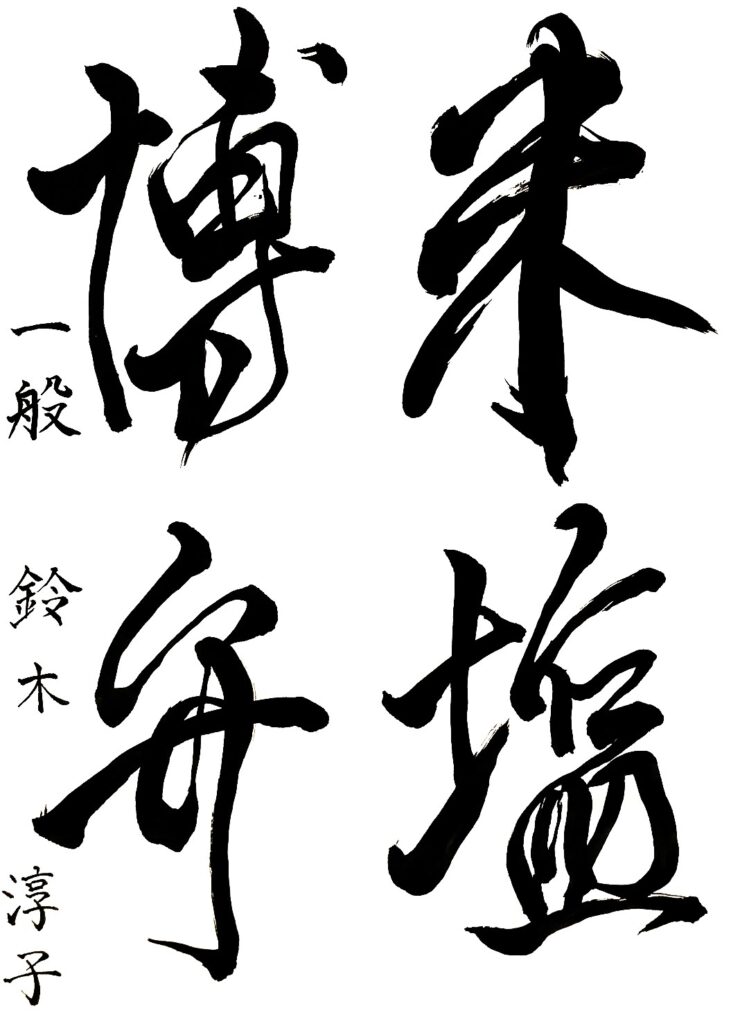 米塩
博弁
一般 鈴木淳子